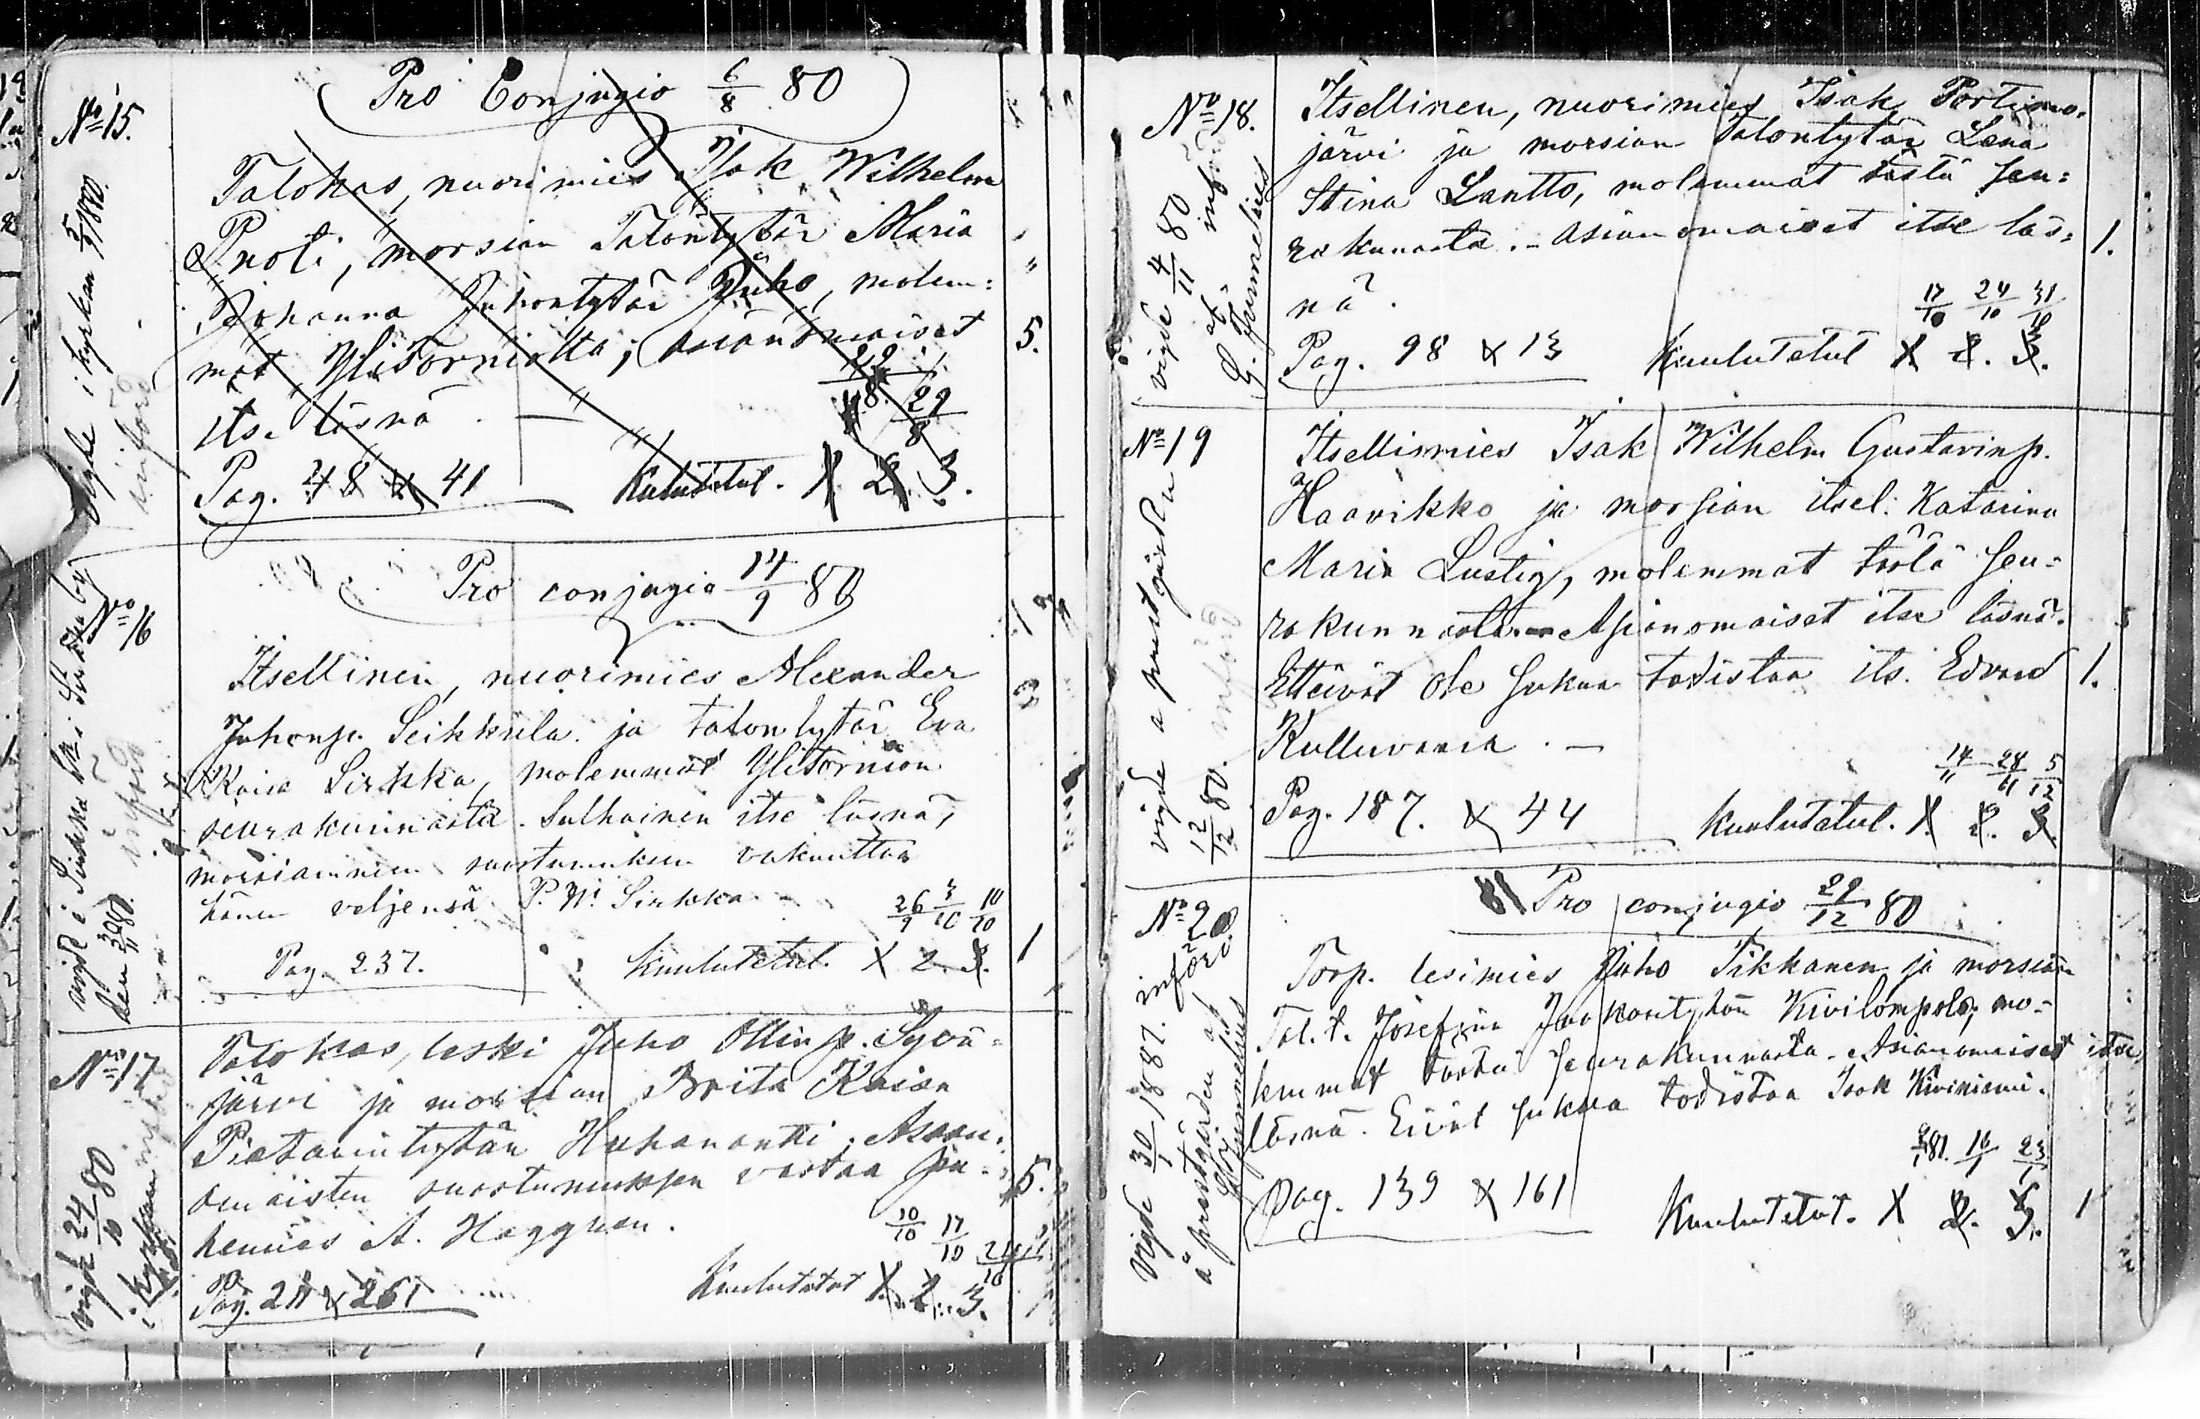 Pro Conjugio 6/8 80
No 15.
Talokas, nuorimies Isak Wilhelm
morsian Talontytär Maria
Johanna Juhontytär molem:
mat YliTorniolta; asianomaiset
itse läsnä. —
29/8
Pag. 48 & 41 Kuulutetut. 1. 2. 3.
5.
vigde i kyrkan 5/9 1880.
införd
Pro conjugio 14/9 80
No 16
Itsellinen, nuorimies Alexander
Juhonp. Seikkula ja talontytär Eva
Kaisa Sirkka, molemmat YliTornion
seurakunnasta. Sulhainen itse läsnä,
morsiammen suostumuksen vakuuttaa
hänen veljensä P. W. Sirkka
26/9 3/10 10/10
Pag. 237. Kuulutetut. 1 2. 3.
1
den 30/11 80. införd
No 17
Talokas, leski Juho Ollinp. Syvä-
järvi ja morsian Brita Kaisa
Pietarintytär Huhanantti. Asian-
omaisten suostumuksen vastaa pu-
hemies A. Häggman.
10/10 17/10
Pag. 211 & 261 Kuulutetut 1. 2. 3.
5.
vigde 24/10 80
i kyrkan
No 18.
Itsellinen, nuorimies Isak Portimo-
järvi ja morsian Talontytär Lena
Stina Lantto, molemmat tästä seu-
rakunnasta. - Asianomaiset itse läs-
nä.
1.
17/10 24/10 31/10
Pag. 98 & 13 Kuulutetut 1. 2. 3.
vigde 4/11 80 införd
af
No 19
Itsellismies Isak Wilhelm Gustavinp.
Haavikko ja morsian itsel. Katarina
Maria Lustig, molemmat tästä seu-
rakunnasta. Asianomaiset itse läsnä.
Etteivät ole sukua todistaa its. Edvard
Kulluvaara. —
1.
14/11 28/11 5/12
Pag. 187. & 44 Kuulutetut. 1. 2. 3.
vigde a prestgården
12/12 80. införd
Pro conjugio 29/12 80
No 20
Torp. lesimies Juho Tikkanen ja morsian
Tal. t. Josefina Jaakontytär Kivilompolo, mo-
lemmat tästä seurakunnasta. Asianomaiset itse
läsnä. Eivät sukua todistaa Isak Kiviniemi.
9/1 81. 16/1 23/1
Pag. 139 & 161 Kuulutetut. 1 2. 3.
1
Vigde 30/1 1881. införd
å prestgården af